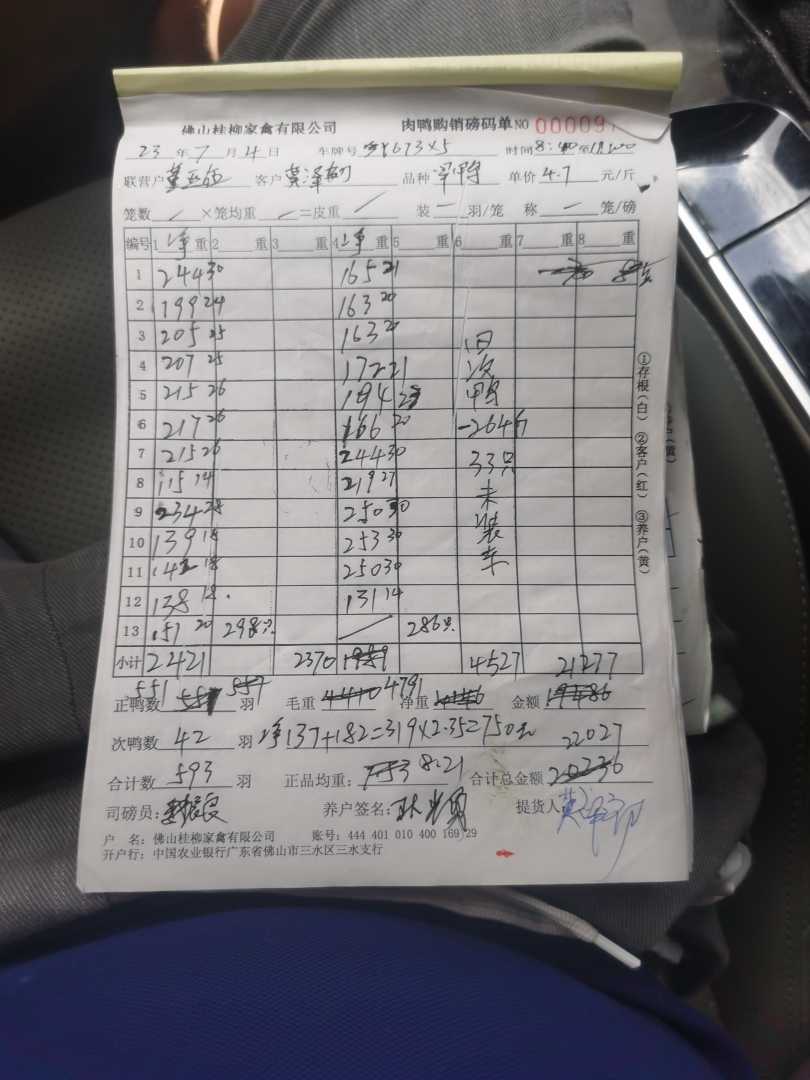 佛山桂柳家禽有限公司 肉鸭购销磅码单 NO 00009
23 年 7 月 4 日 车牌号 673X5 时间 8:40 至
联营户 客户 品种 单价 4.7 元/斤
笼数 / ×笼均重 / =皮重 / 装 一 羽/笼 称 一 笼/磅
编号 1 净 重 2 重 3 重 4 净 重 5 重 6 重 7 重 8 重
1 244 30 165 21
2 199 24 163 20
3 205 25 163 20 旧
4 207 25 172 21 次
5 215 26 194 鸭
6 217 26 166 20 -264斤
7 215 26 244 30 33只
8 115 14 219 27 未
9 234 28 250 30 装
10 139 18 253 30 车
11 142 18 250 30
12 138 18 131 14
13 151 20 298只 / 286只
小计 2421 2370 4527 21277
正鸭数 551 羽 毛重 4791 净重 金额
次鸭数 42 羽 净137+182=319×2.35=750元 22027
合计数 593 羽 正品均重: 8.21 合计总金额
司磅员: 养户签名: 提货人
户 名: 佛山桂柳家禽有限公司 账号: 444 401 010 400 169 29
开户行: 中国农业银行广东省佛山市三水区三水支行
①存根(白) ②客户(红) ③养户(黄)